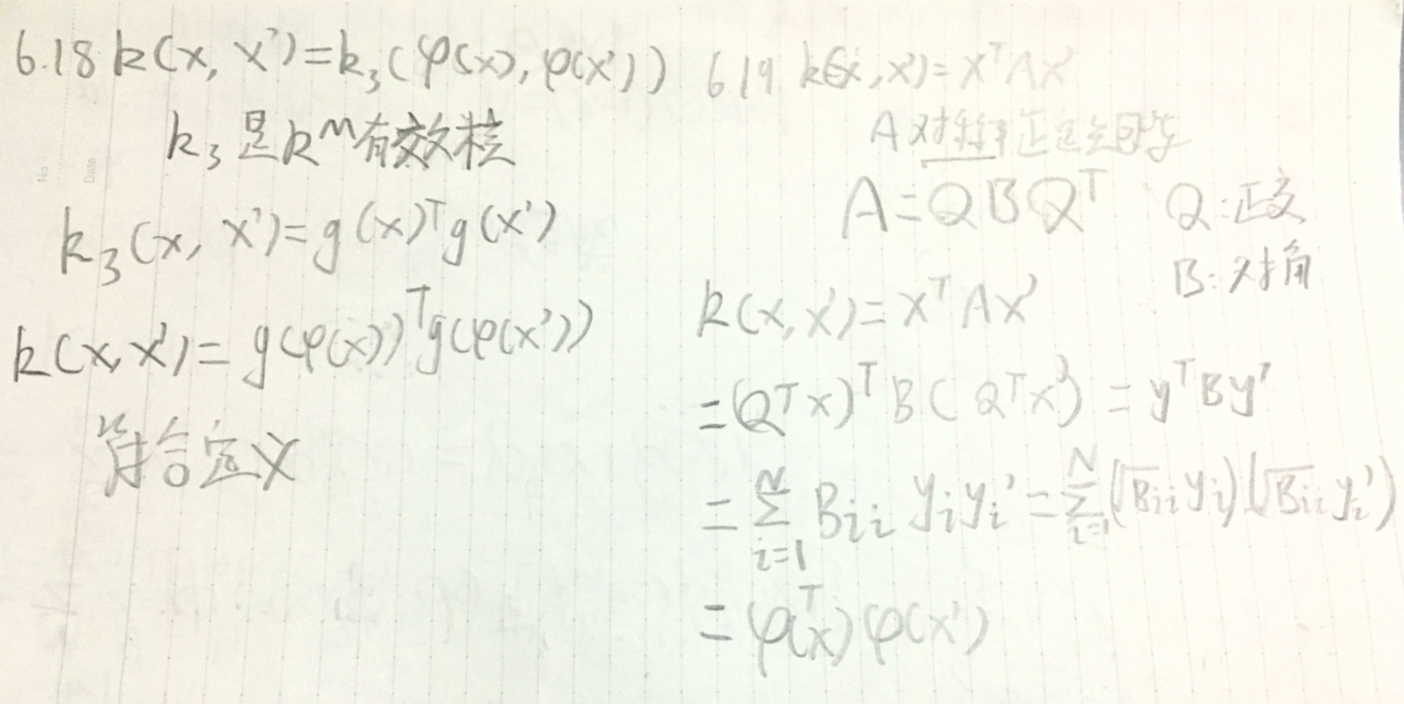 6.18 k(x, x')=k₃(φ(x), φ(x'))
k₃是R^M有效核
k₃(x, x')=g(x)ᵀg(x')
k(x,x')=g(φ(x))ᵀg(φ(x'))
符合定义
6.19 k(x,x')=xᵀAx'
A对称半正定矩阵
A=QBQᵀ Q:正交
B:对角
k(x,x')=xᵀAx'
=(Qᵀx)ᵀB(Qᵀx')=yᵀBy'
=∑_{i=1}^{N} B_{ii} y_i y_i'=∑_{i=1}^{N}(√B_{ii} y_i)(√B_{ii} y_i')
=φᵀ(x)φ(x')